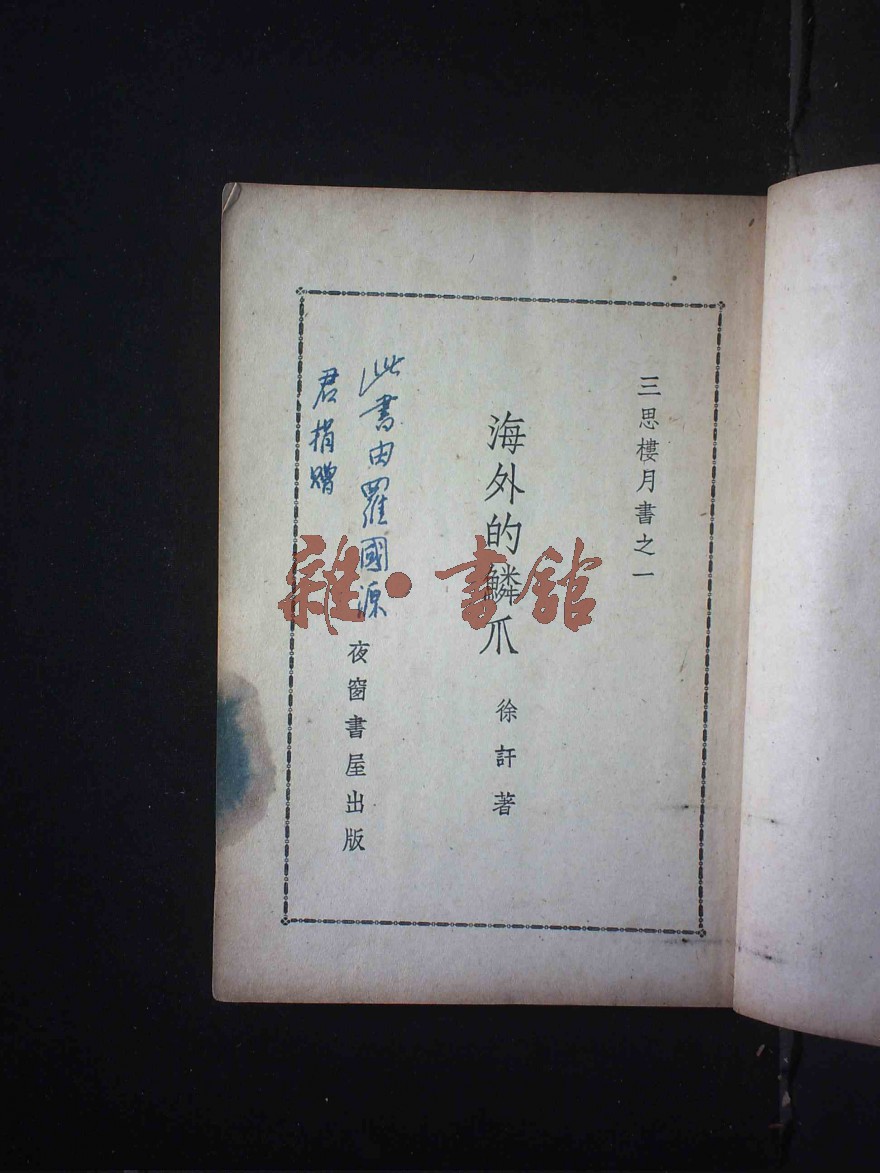 三思樓月書之一
海外的鱗爪
徐訏著
此書由羅國源
君捐贈
夜窗書屋出版
雜·書館